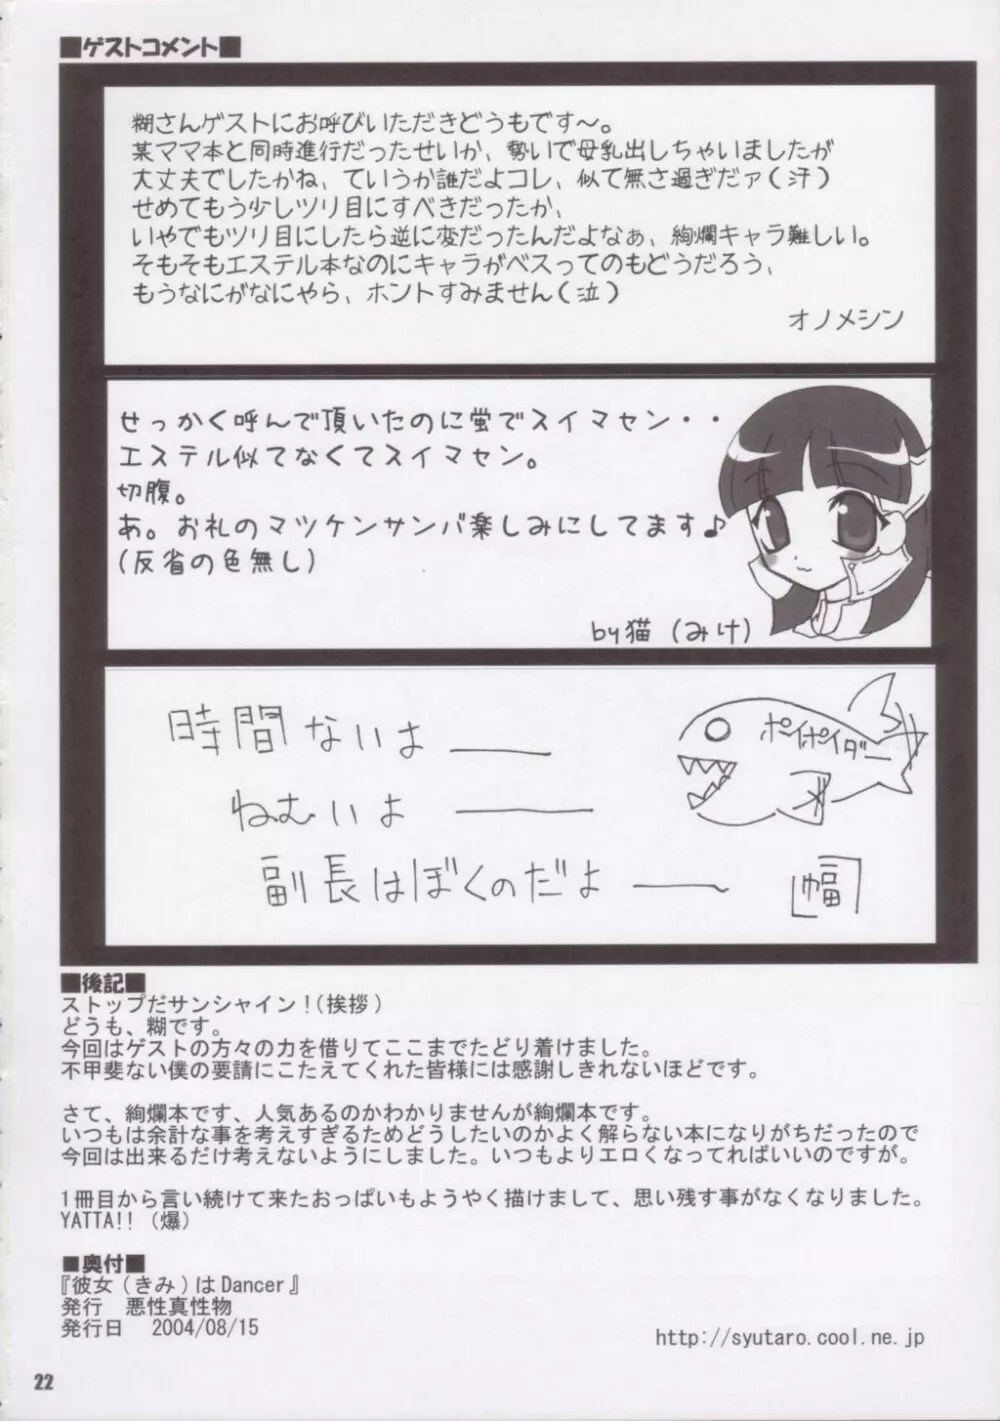 ■ゲストコメント■
糊さんゲストにお呼びいただきどうもです〜。
某ママ本と同時進行だったせいか、勢いで母乳出しちゃいましたが
大丈夫でしたかね、ていうか誰だよコレ、似て無さ過ぎだァ(汗)
せめてもう少しツリ目にすべきだったか、
いやでもツリ目にしたら逆に変だったんだよなぁ、絢爛キャラ難しい。
そもそもエステル本なのにキャラがベスってのもどうだろう、
もうなにがなにやら、ホントすみません(泣)
オノメシン
せっかく呼んで頂いたのに蛍でスイマセン・・
エステル似てなくてスイマセン。
切腹。
あ。お礼のマツケンサンバ楽しみにしてます♪
(反省の色無し)
by猫 (みけ)
時間ないよ――
ポイポイダー
ねむいよ ――
副長はぼくのだよ ――
[幅]
■後記■
ストップだサンシャイン!(挨拶)
どうも、糊です。
今回はゲストの方々の力を借りてここまでたどり着けました。
不甲斐ない僕の要請にこたえてくれた皆様には感謝しきれないほどです。
さて、絢爛本です、人気あるのかわかりませんが絢爛本です。
いつもは余計な事を考えすぎるためどうしたいのかよく解らない本になりがちだったので
今回は出来るだけ考えないようにしました。いつもよりエロくなってればいいのですが。
1冊目から言い続けて来たおっぱいもようやく描けまして、思い残す事がなくなりました。
YATTA!! (爆)
■奥付■
『彼女(きみ)はDancer』
発行 悪性真性物
発行日 2004/08/15
http://syutaro.cool.ne.jp
22